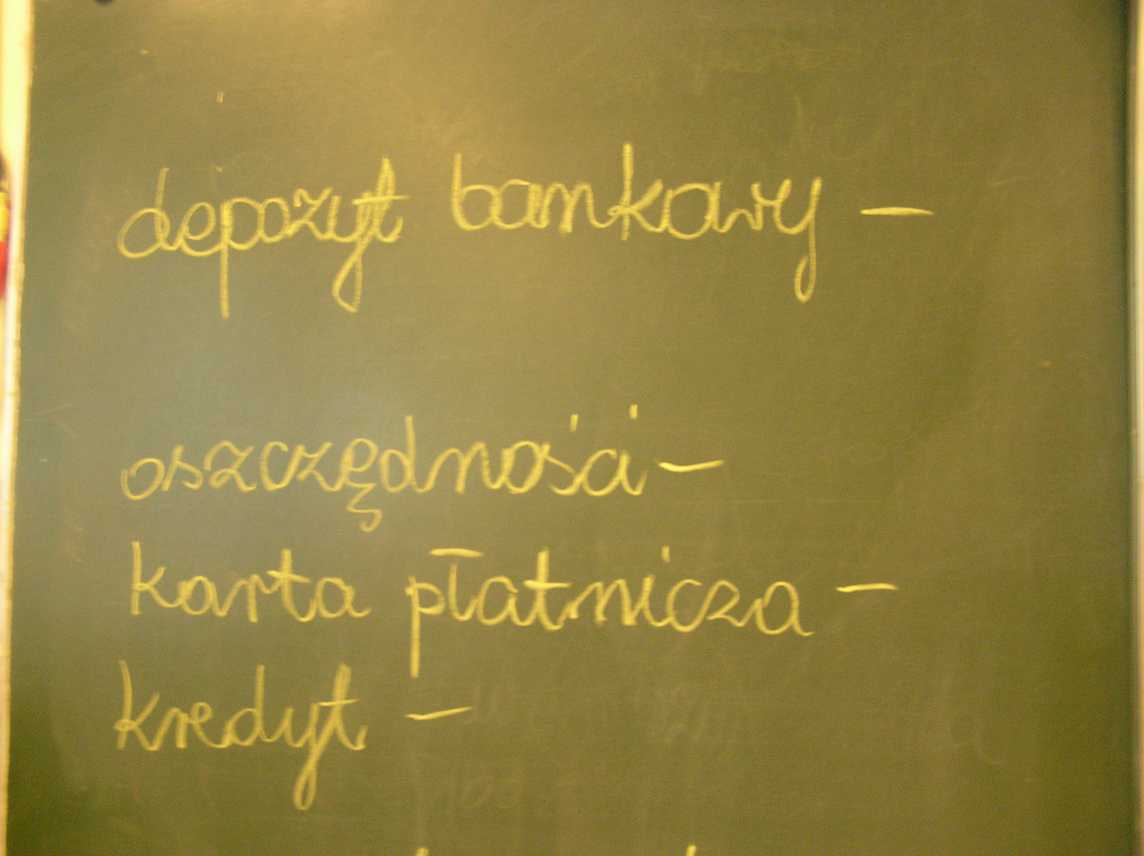 depozyt bankowy –
oszczędności –
karta płatnicza –
kredyt –